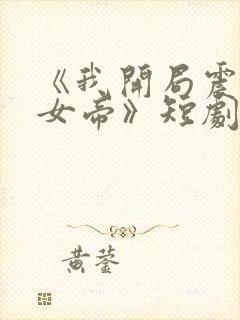 《我開局震
女帝》短劇
黄蓥